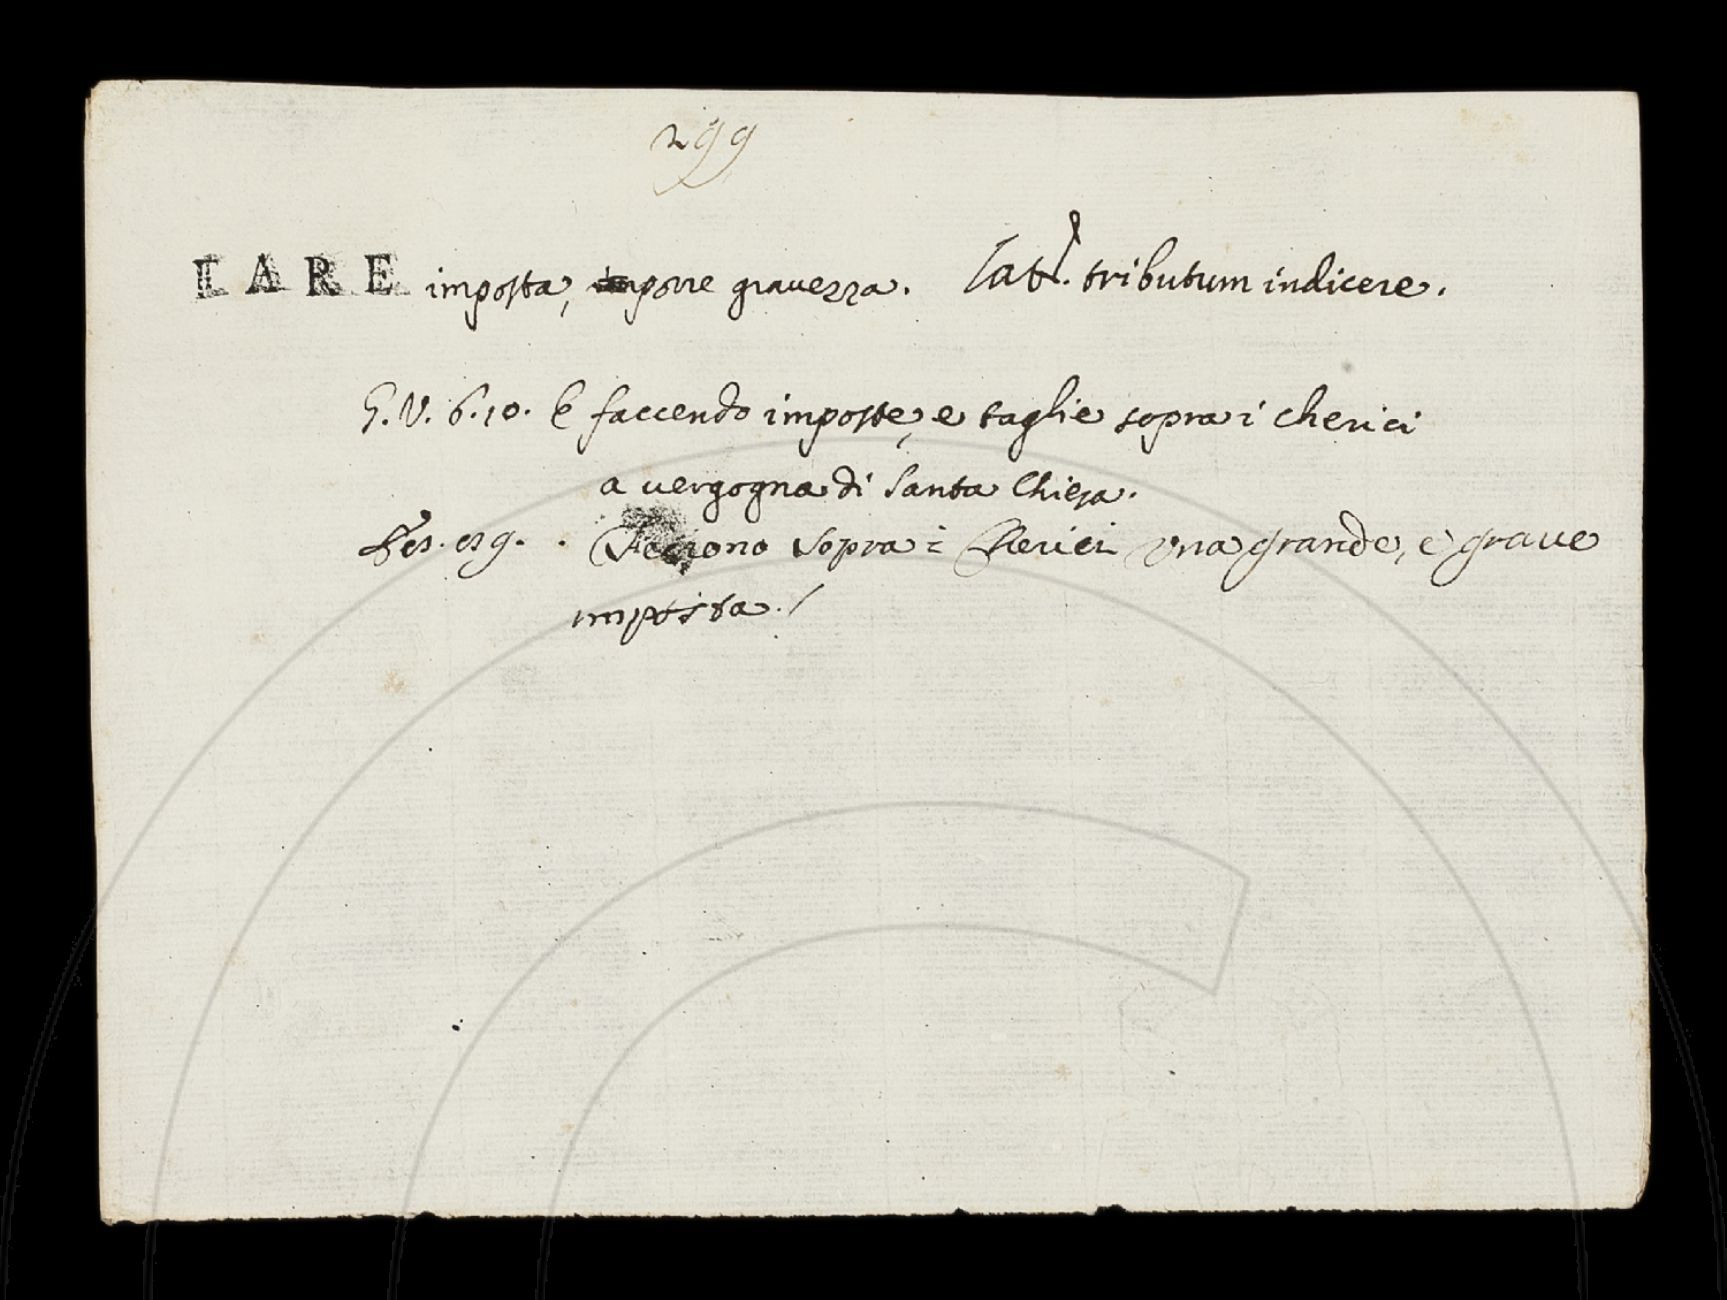 299
FARE imposta, porre grauezza. Lat. tributum indicere.
G. V. 6. 10. E faccendo imposte, e taglie sopra i cherici
a uergogna di Santa Chiesa.
Feciono sopra i Cherici una grande, e graue
imposta.